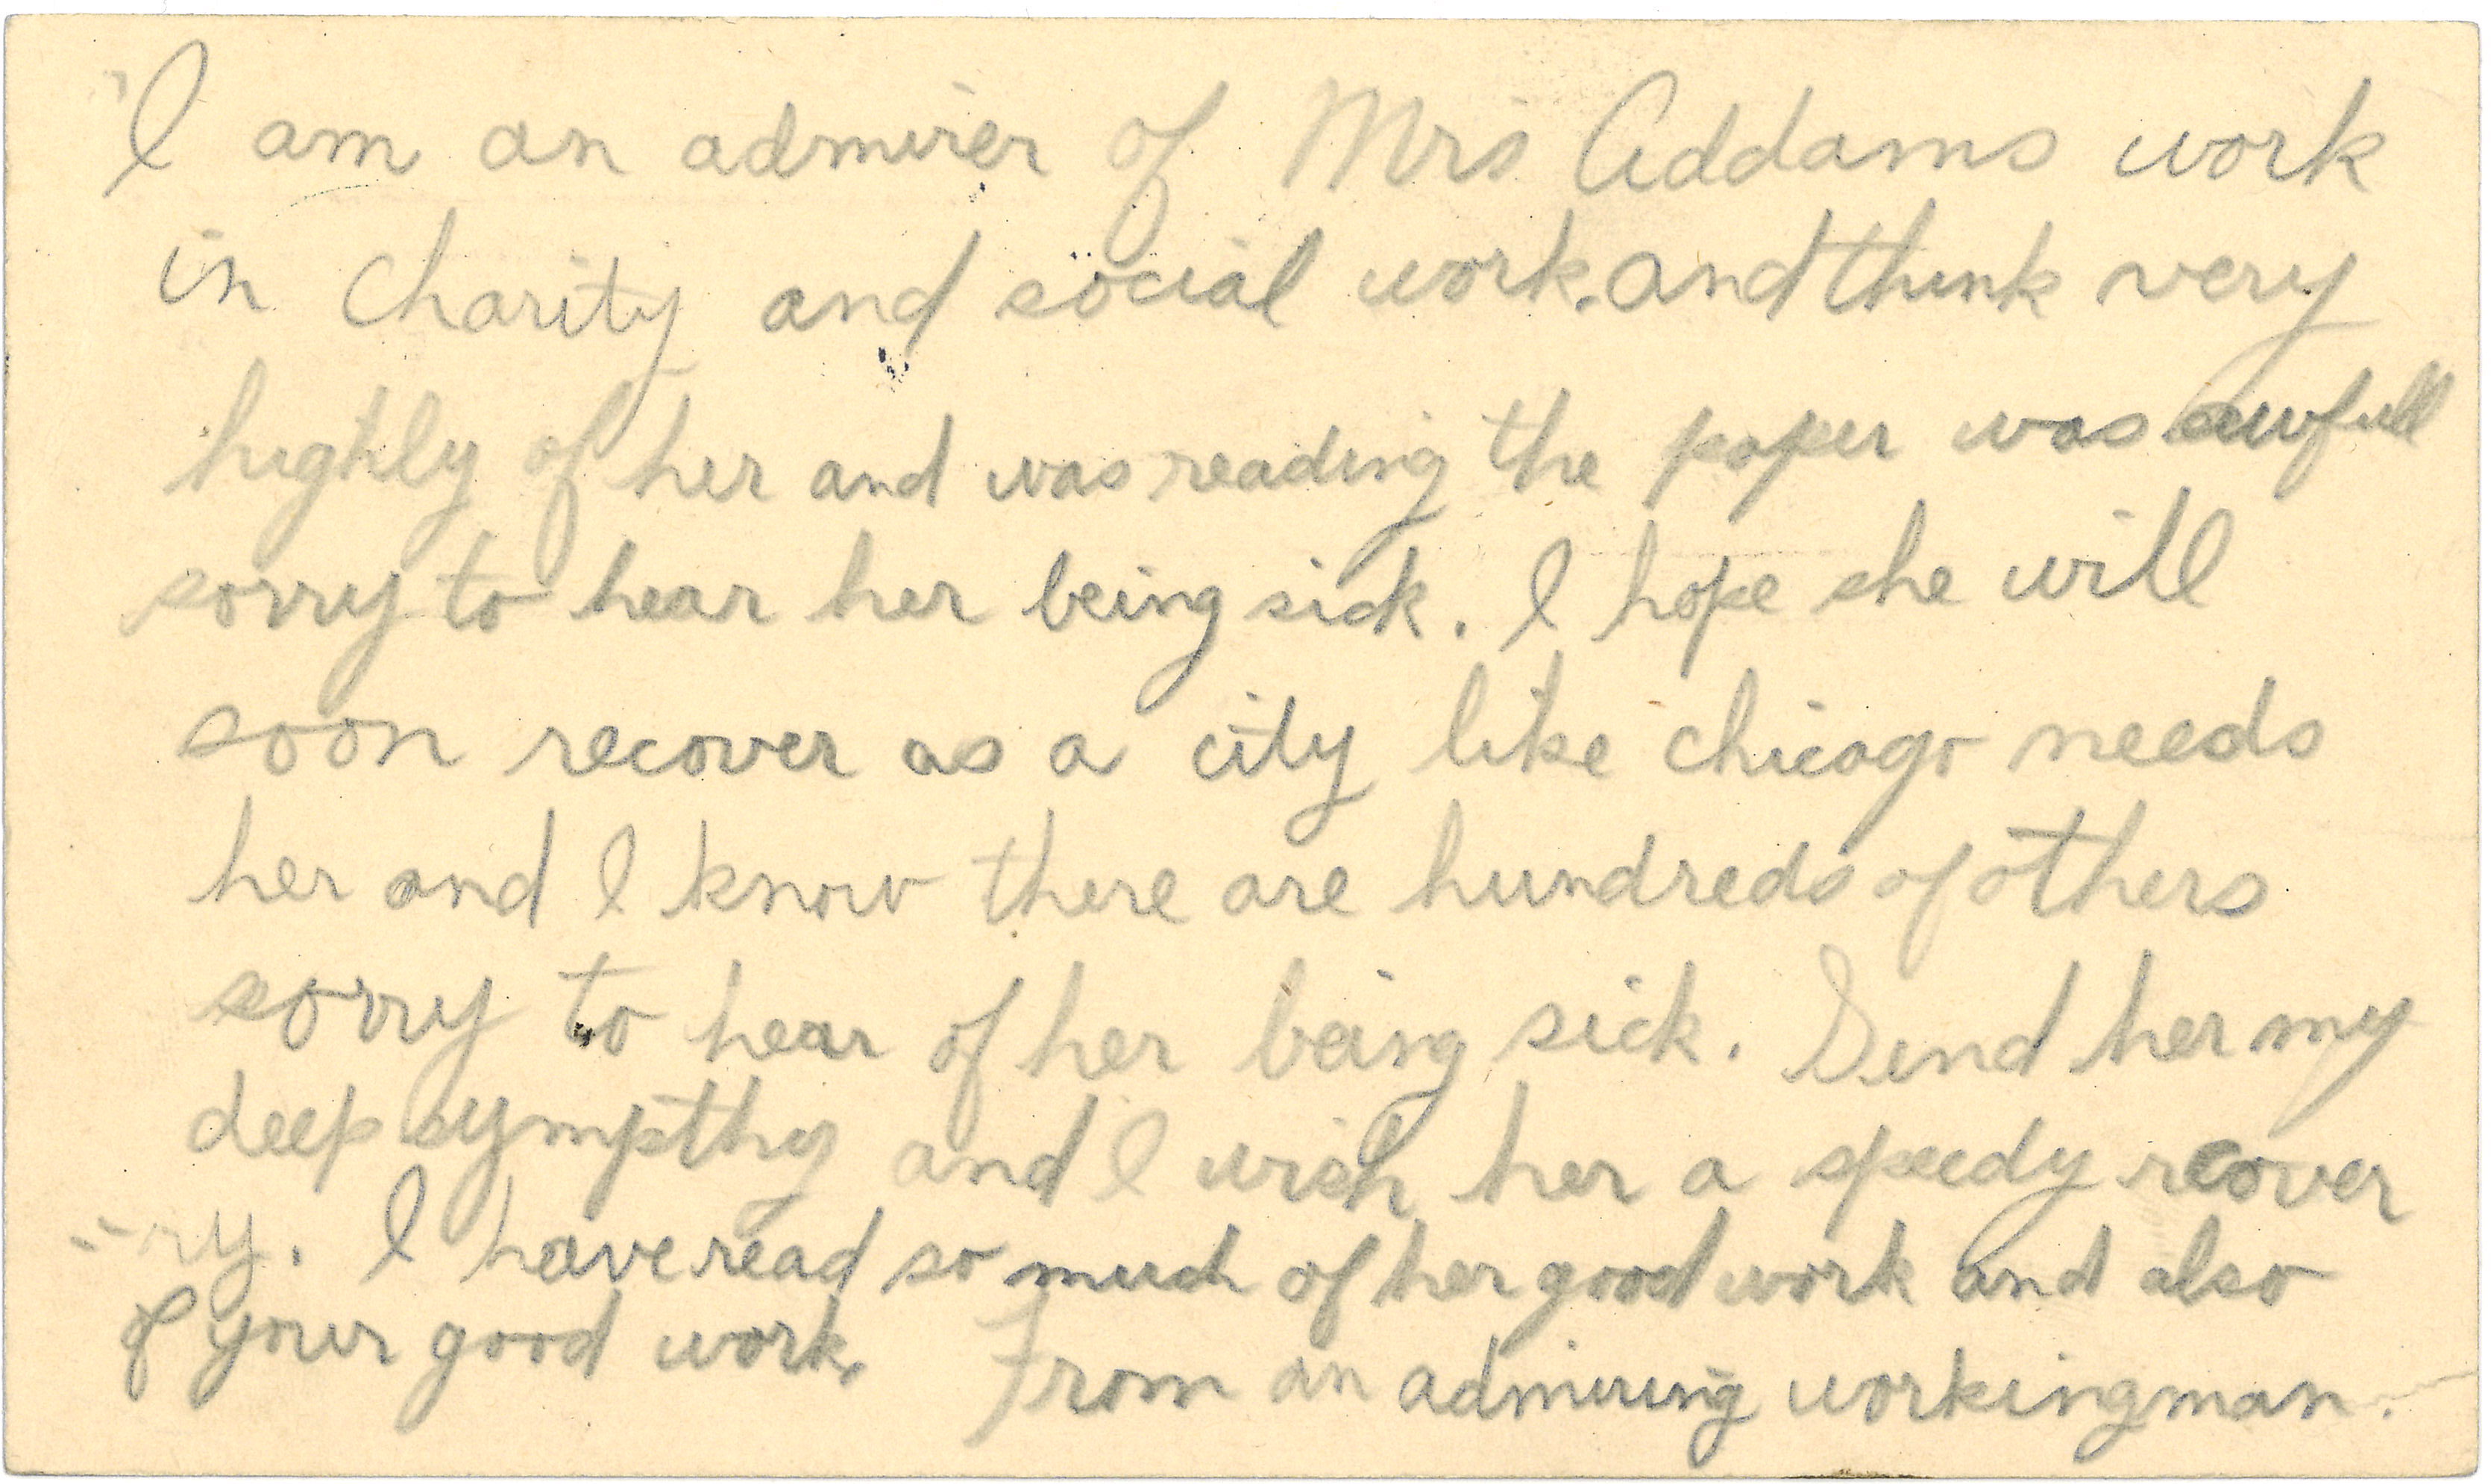 I am an admirer of Mrs Addams work
in charity and social work. and think very
highly of her and was reading the paper was awfull
sorry to hear her being sick. I hope she will
soon recover as a city like chicago needs
her and I know there are hundreds of others
sorry to hear of her being sick. Send her my
deep sympthy and I wish her a speedy recover
=ry. I have read so much of her good work and also
of your good work. From an admiring workingman.